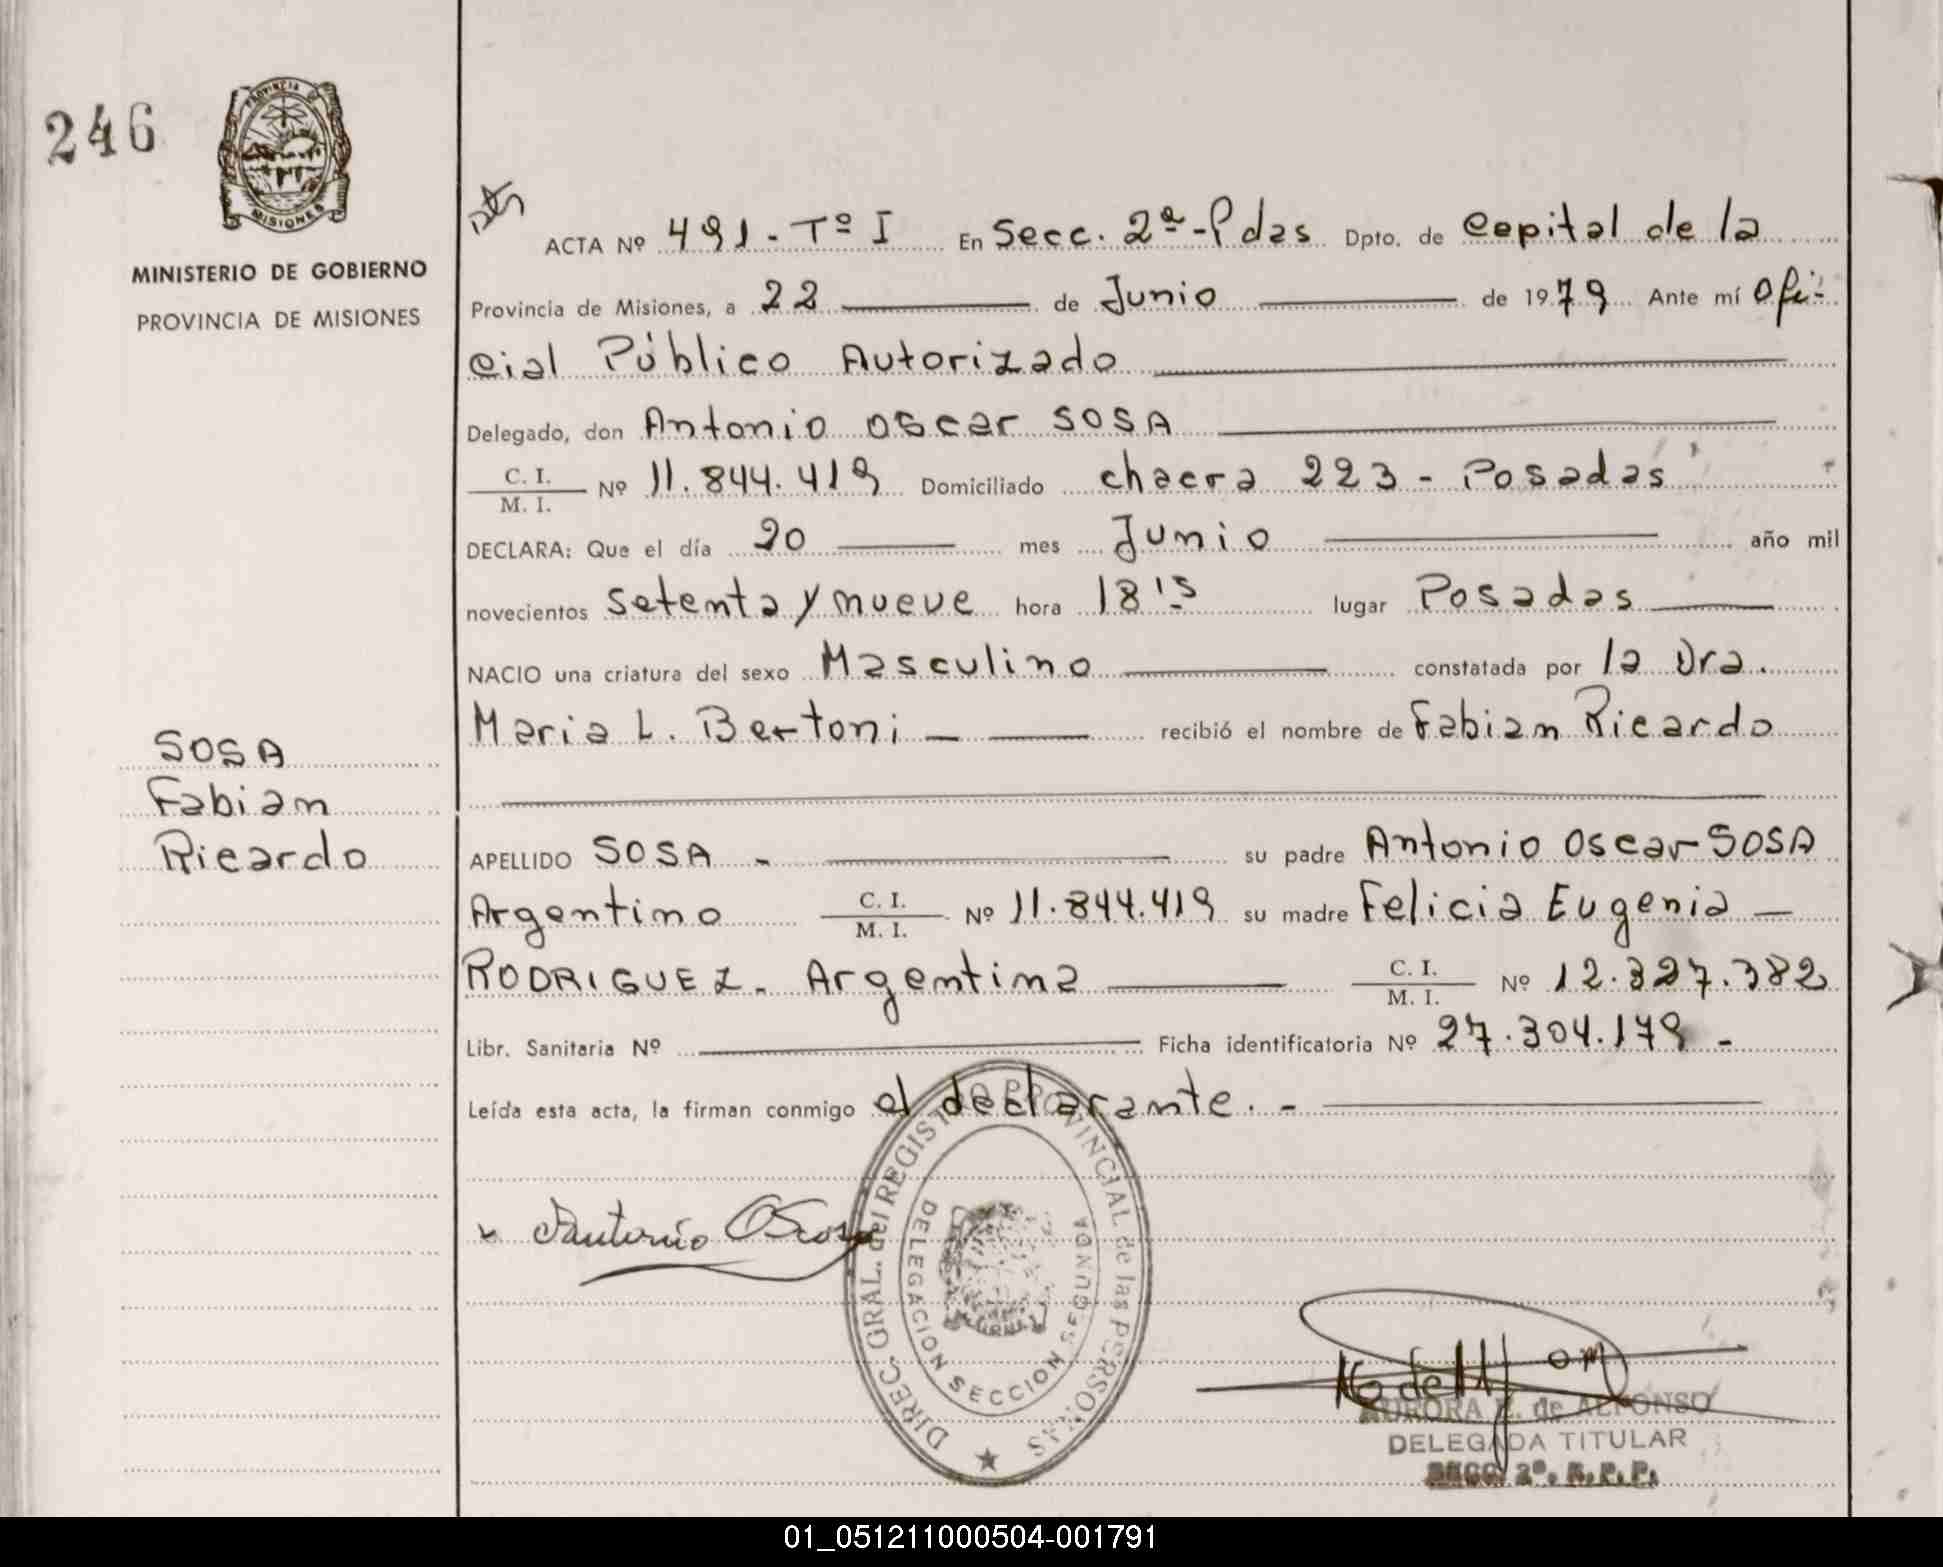 246
PROVINCIA DE
MISIONES
MINISTERIO DE GOBIERNO
PROVINCIA DE MISIONES
SOSA
Fabian
Ricardo
ACTA Nº 491 - Tº I En Secc. 2ª - Pdas Dpto. de Capital de la
Provincia de Misiones, a 22 de Junio de 1979 Ante mí Ofi-
cial Público Autorizado
Delegado, don Antonio Oscar SOSA
C. I.
M. I. Nº 11.844.419 Domiciliado chacra 223 - Posadas
DECLARA: Que el día 20 mes Junio año mil
novecientos setenta y nueve hora 18'15 lugar Posadas
NACIO una criatura del sexo Masculino constatada por la Dra.
Maria L. Bertoni - recibió el nombre de Fabian Ricardo
APELLIDO SOSA - su padre Antonio Oscar SOSA
Argentino C. I.
M. I. Nº 11.844.419 su madre Felicia Eugenia
RODRIGUEZ - Argentina C. I.
M. I. Nº 12.327.382
Libr. Sanitaria Nº Ficha identificatoria Nº 27.304.179 -
Leída esta acta, la firman conmigo el declarante. -
DIREC. GRAL. del REGISTRO PROVINCIAL de las PERSONAS
DELEGACION SECCION SEGUNDA
Antonio Oscar
AURORA de ALFONSO
DELEGADA TITULAR
SECC. 2ª. R. P. P.
01_051211000504-001791